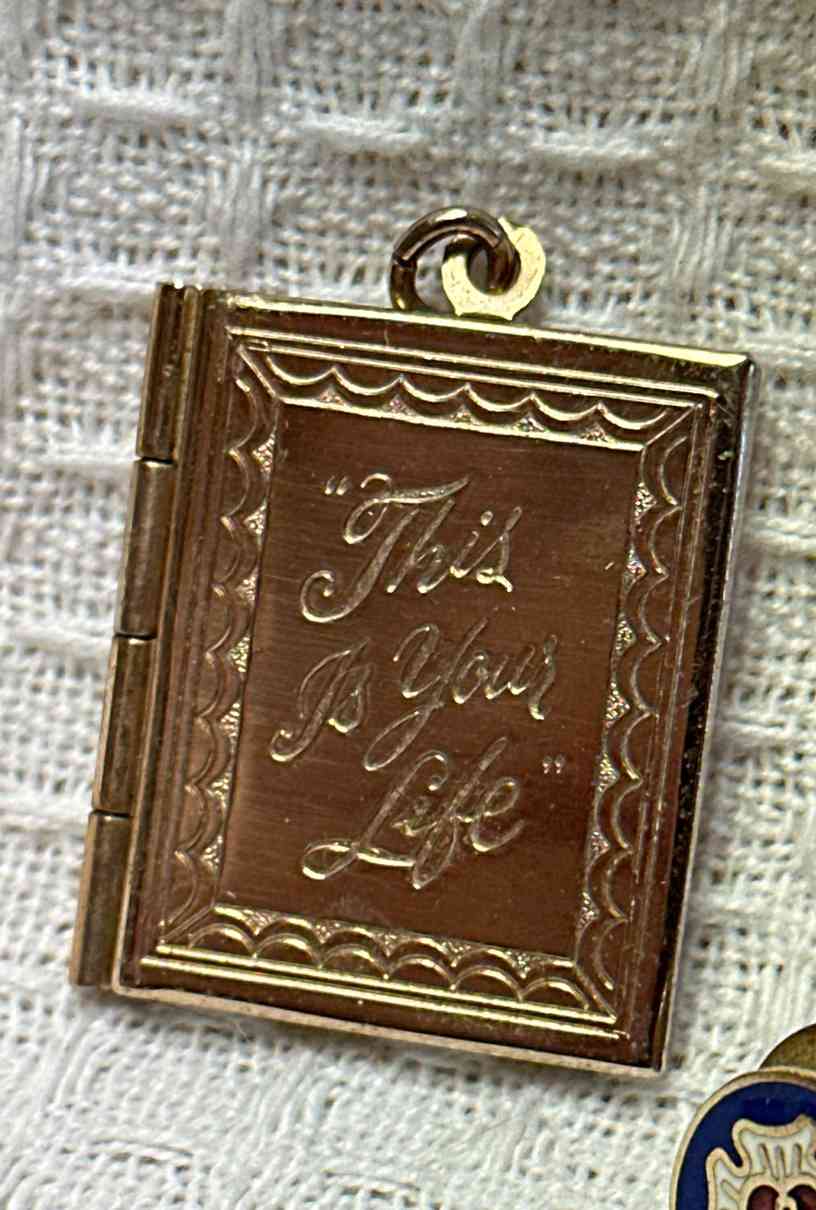 "This
Is Your
Life"